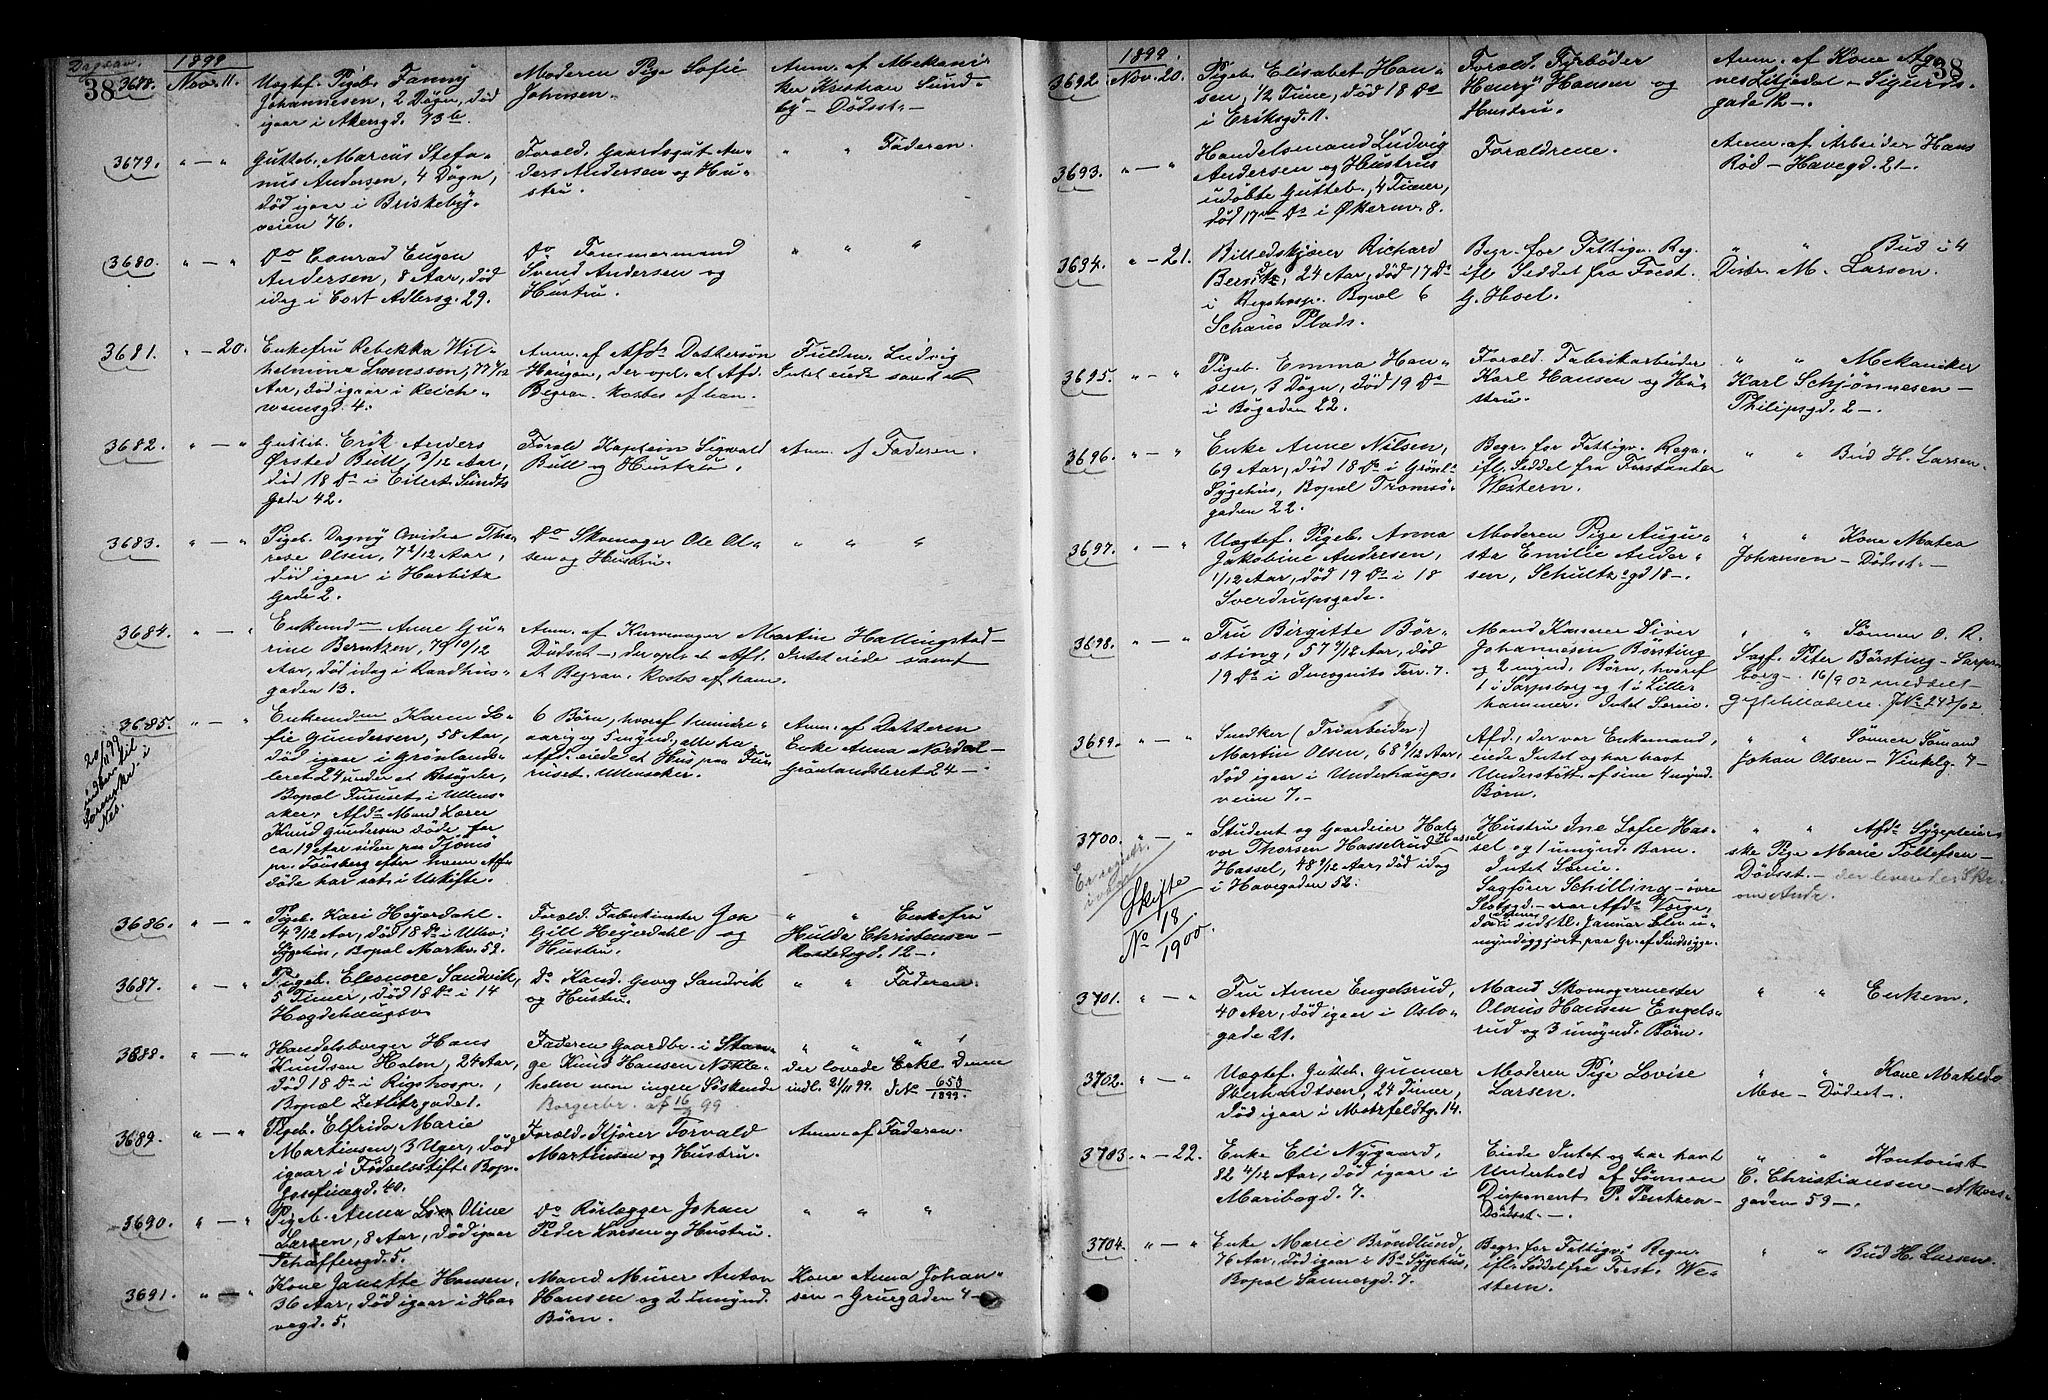 Dagsav.
1899
38
3678. Nov. 11. Uægtef. Pigeb. Fanny
Johannesen, 2 Døgn, død
igaar i Akersgd. 73 b.
Moderen Pige Sofie
Johnsen.
Anm. af Mekani-
ker Kristian Sund-
by - Dødsst. -
3679. " — " Gutteb. Marcus Stefa-
nus Andersen, 4 Døgn,
død igaar i Briskeby-
veien 76.
Foræld. Gaardsgut An-
ders Andersen og Hu-
stru.
" " Faderen.
3680. " — " Do Conrad Eugen
Andersen, 8 Aar, død
idag i Cort Adlersg. 29.
Do Tømmermand
Svend Andersen og
Hustru.
" " "
3681. " — 20. Enkefru Rebekka Wil-
helmina Svensson, 77
Aar, død igaar i Reich-
weinsgd. 4.
Anm. af Afds Dattersøn Fuldm. Ludvig
Haugan, der opl. at Afd. Intet eiede samt at
Begrav. kostes af ham.
3682. " — " Gutteb. Erik Anders
Ørsted Bull, 3/12 Aar,
død 18 Ds i Eilert Sundts
Gade 42.
Foræld Kaptein Sigwald
Bull og Hustru.
Anm. af Faderen.
3683. " — " Pigeb. Dagny Ovidia The-
rese Olsen, 7 2/12 Aar,
død igaar i Harbitz
Gade 2.
Do Skomager Ole Ol-
sen og Hustru.
" " "
3684. " — " Enkemdm Anne Gu-
rine Berntzen, 70 10/12
Aar, død idag i Raadhus-
gaden 13.
Anm. af Kurvmager Martin Hallingstad -
Dødsst. -, der opl. at Afd. Intet eiede samt
at Begrav. kostes af ham.
3685. " — " Enkemdm Karen So-
fie Gundersen, 58 Aar,
død igaar i Grønlands-
leret 24 under et Besøg her,
Bopæl Furuset i Ullens-
aker, Afds Mand Lærer
Knud Gundersen døde for
ca 19 Aar siden paa Tjømø
pr. Tønsberg efter hvem Afd.
døde har sat i Uskifte.
6 Børn, hvoraf 1 mindre-
aarig og 5 mynd., alle her,
Afd. eiede et Hus paa Fu-
ruset, Ullensaker.
Anm. af Datteren
Enke Anna Nordal -
Grønlandsleret 24 -.
20/11 99
indber. til
Sorenskr. i
Nes.
3686. " — " Pigeb. Kari Heyerdahl.
4 3/12 Aar, død 18 Ds i Ullev.
Sygehus, Bopæl Markv. 52.
Foræld. Fabrikmester Jon
Gill Heyerdahl og
Hustru.
" " Enkefru
Hulda Christensen -
Rostedsgd. 12 -.
3687. " — " Pigeb. Elenore Sandvik,
5 Timer, død 18 Ds i 14
Hægdehaugsv.
Do Kand. Georg Sandvik
og Hustru.
" " Faderen.
3688. " — " Handelsborger Hans
Knudsen Holm, 24 Aar,
død 18 Ds i Rigshosp.,
Bopæl Zetlitzgade 1.
Faderen Gaardbr. i Stan-
ge Knud Hansen Nøkle-
holm men ingen Søskende
Borgerbr. af 16/9 99
" " "
der lovede Erkl. Denne
indl. 21/11 99. J.No 650/1899.
3689. " — " Pigeb. Elfrida Marie
Martinsen, 3 Uger, død
igaar i Fødselsstift. Bop.
Josefinegd. 40.
Foræld. Kjører Torvald
Martinsen og Hustru.
Anm. af Faderen.
3690. " — " Pigeb. Anna Oline
Larsen, 8 Aar, død igaar
Schaffersgd. 5.
Do Rørlægger Johan
Peder Larsen og Hustru.
" " "
3691. " — " Kone Janette Hansen,
36 Aar, død igaar i Ha-
vegd. 5.
Mand Murer Anton
Hansen og 2 umynd.
Børn.
Kone Anna Johan-
sen - Gruegaden 4 -
1899.
38
3692. Nov. 20. Pigeb. Elisabet Han-
sen, 1/2 Time, død 18 Ds
i Eriksgd. 11.
Foræld. Fyrbøder
Henry Hansen og
Hustru.
Anm. af Kone Ag-
nes Liljedal - Sigurds-
gade 12 -.
3693. " — " Handelsmand Ludvig
Andersen og Hustrus
udøbte Gutteb., 4 Timer,
død 17de Ds i Økernv. 8.
Forældrene.
Anm. af Arbeider Hans
Rød - Havegd. 21 -.
3694. " — 21. Billedskjærer Richard
24 Aar, død 17 Ds
i Rigshosp. Bopæl 6
Schous Plads.
Begr. for Fattigv. Reg.
ifl. Seddel fra Forst.
G. Hoel.
" " Bud i 4
Distr. M. Larsen.
3695. " — " Pigeb. Emma Han-
sen, 3 Døgn, død 19 Ds
i Bogaden 22.
Foræld. Fabrikarbeider
Karl Hansen og Hu-
stru.
" " Mekaniker
Karl Schjønnesen -
Philipsgd. 2 -.
3696. " — " Enke Anne Nilsen,
69 Aar, død 18 Ds i Grønl.
Sygehus, Bopæl Tromsø-
gaden 22.
Begr. for Fattigv. Regn.
ifl. Seddel fra Forstander
Western.
" " Bud H. Larsen.
3697. " — " Uægtef. Pigeb. Anna
Jakobine Andersen,
1/12 Aar, død 19 Ds i 18
Sverdrupsgade.
Moderen Pige Augu-
sta Emilie Ander-
sen, Schultzsgd 18 -.
" " Kone Matea
Johansen - Dødsst. -
3698. " — " Fru Birgitte Bør-
sting, 57 7/12 Aar, død
19 Ds i Incognito Terr. 7.
Mand Kasserer Diver
Johannesen Børsting
og 2 mynd. Børn, hvoraf
1 i Sarpsborg og 1 i Lille-
hammer. Intet Særeie.
" " Sønnen O. R.
Sagf. Peter Børsting - Sarps-
borg -. 16/9 02 meddelt
Skiftetilladelse. J.No 243/02.
3699. " — " Snedker (Friarbeider)
Martin Olsen, 68 9/12 Aar,
død igaar i Underhaugs-
veien 7. -
Afd., der var Enkemand,
eiede Intet og har havt
Understøtt. af sine 4 mynd.
Børn.
" " Sønnen Sømand
Johan Olsen - Vinkelg. 4 -
3700. " — " Student og Gaardeier Hal-
vor Thorsen Hasselrud Hassel
Hassel, 48 9/12 Aar, død idag
i Havegaden 52.
Hustru Ine Sofie Has-
sel og 1 umynd. Barn.
Intet Særeie.
Sagfører Schilling - øvre
Slotsgd. - var Afds Værge,
da Denne i sidstl. Januar blev u-
myndiggjort paa Gr. af Sindssyge.
" " Afds Sygepleier-
ske Pige Marie Tollefsen -
Dødsst. -
Skifte
No 18/1900.
3701. " — " Fru Anne Engelsrud,
40 Aar, død igaar i Oslo-
gade 21.
Mand Skomagermester
Olaus Hansen Engels-
rud og 3 umynd. Børn.
" " Enkem.
3702. " — " Uægtef. Gutteb. Gunner
Eberhardtsen, 24 Timer,
død igaar i Motzfeldtg. 14.
Moderen Pige Lovise
Larsen.
" " Kone Matilda
Moe - Dødsst. -.
3703. " — 22. Enke Eli Nygaard,
82 4/12 Aar, død igaar i
Maribogd. 7.
Eiede Intet og har havt
Underhold af Sønnen
Disponent P. Pentzen -
Dødsst. -.
" " Kontorist
C. Christiansen - Akers-
gaden 59 -.
3704. " — " Enke Marie Brøndlund,
76 Aar, død igaar i Bs Sygehus,
Bopæl Sannergd. 7.
Begr. for Fattigv.s Regn.
ifl. Seddel fra Forst. We-
stern.
" " Bud H. Larsen.